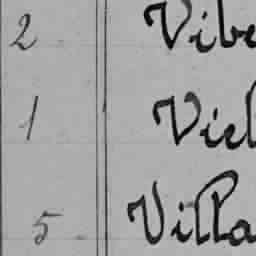 2 Vibe
1 Viel
5 Villa